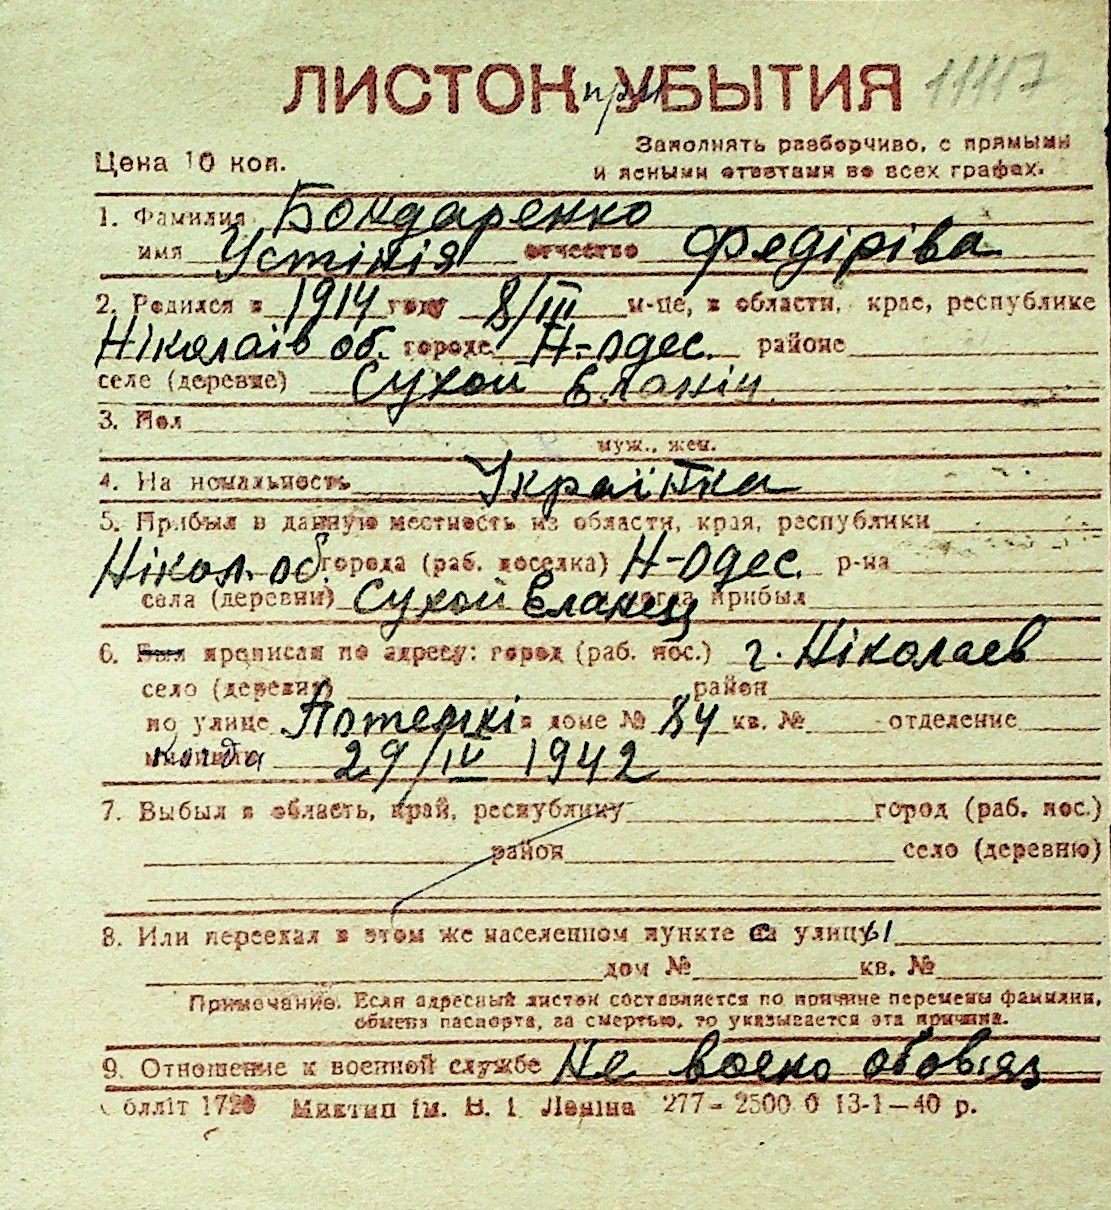 ЛИСТОК при УБЫТИЯ 11117
Заполнять разборчиво, с прямыми
Цена 10 коп.
и ясными ответами во всех графах.
1. Фамилия Бондаренко
имя Устінія отчество Федіріва
2. Родился в 1914 году 8/III м-це, в области, крае, республике
Ніколаів об. городе Н-Одес. районе
селе (деревне) Сухой Еланіц
3. Пол
муж., жен.
4. Национальность Українка
5. Прибыл в данную местность из области, края, республики
Нікол. об. города (раб. поселка) Н-Одес. р-на
села (деревни) Сухой Еланец когда прибыл
6. Был прописан по адресу: город (раб. пос.) г. Ніколаев
село (деревня) район
по улице Потемкі в доме № 84 кв. № отделение
когда 29/IV 1942
7. Выбыл в область, край, республику город (раб. пос.)
район село (деревню)
8. Или переехал в этом же населенном пункте с улицы
дом № кв. №
Примечание. Если адресный листок составляется по причине перемены фамилии,
обмена паспорта, за смертью, то указывается эта причина.
9. Отношение к военной службе Не воено обовіяз
Обллiт 1720 Миктип ім. В. І. Леніна 277–2500 0 13-1—40 р.